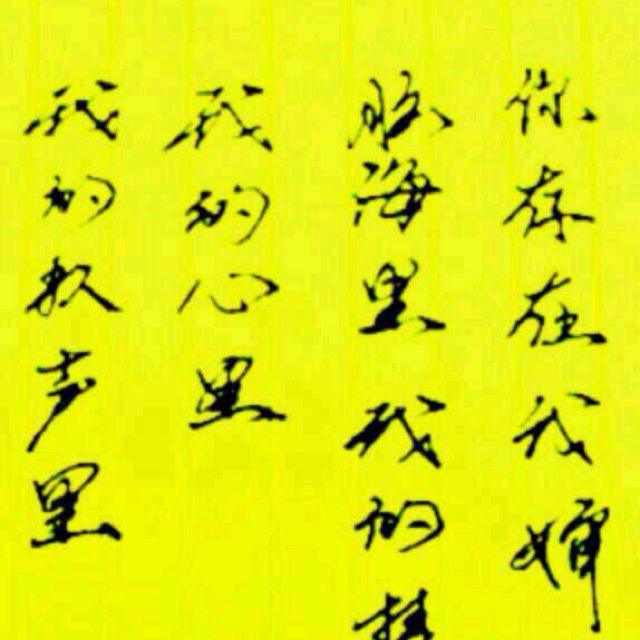 你存在我
脑海里我的
我的心里
我的歌声里